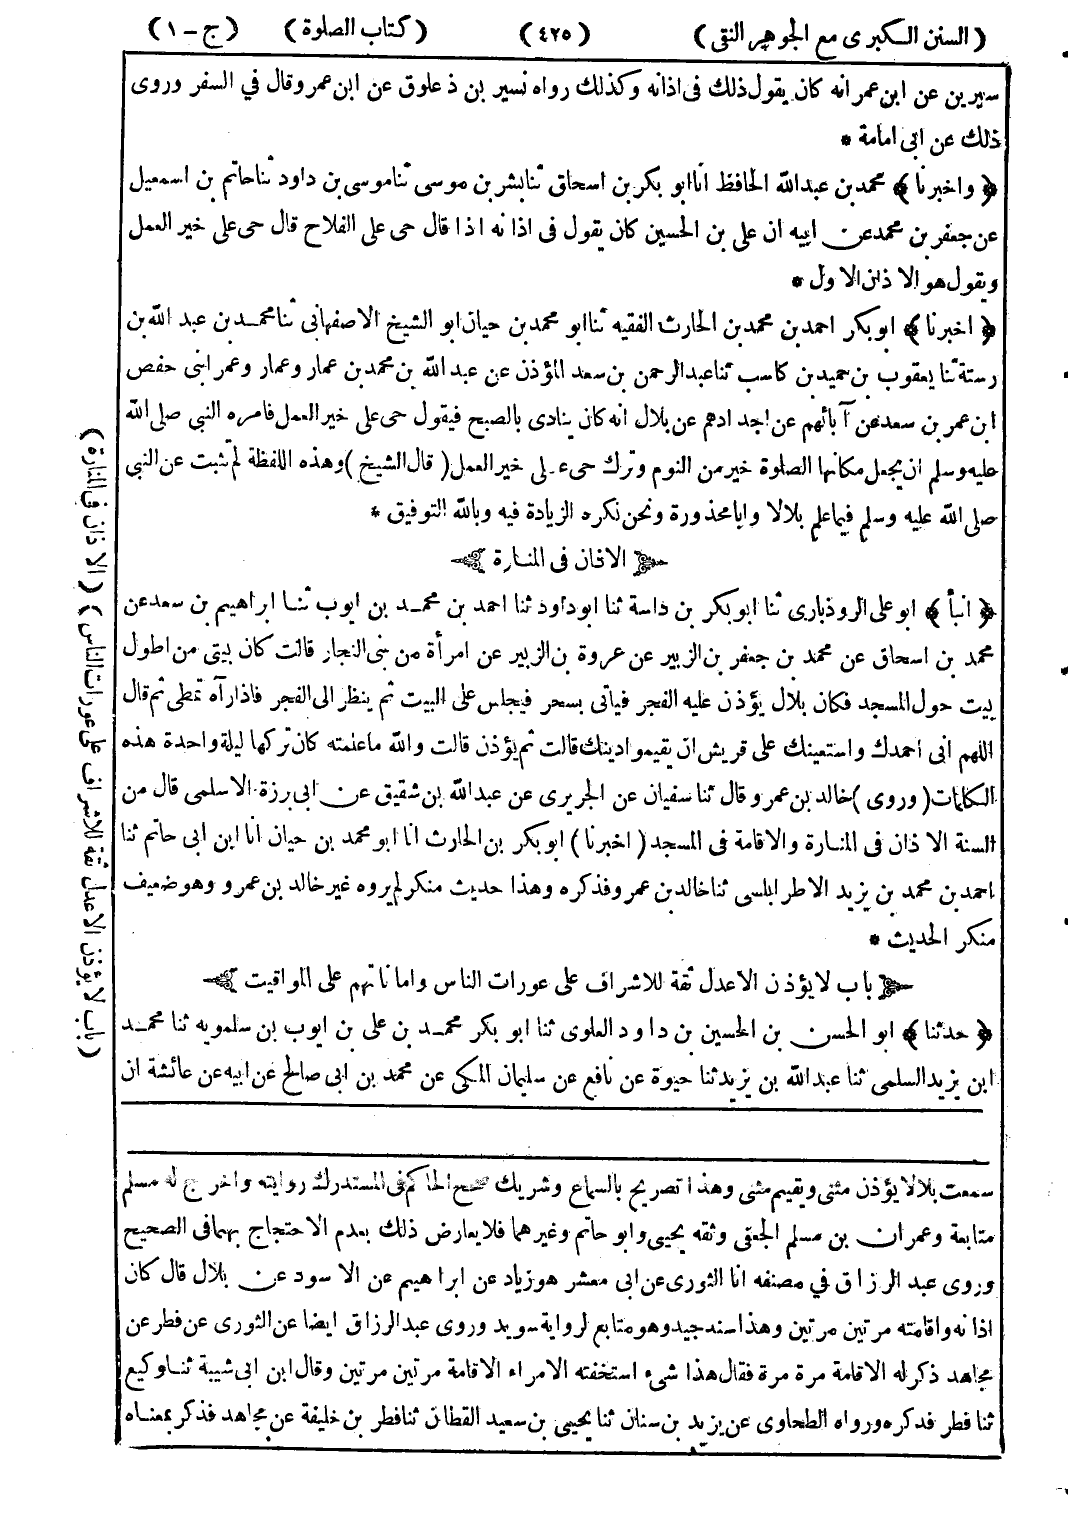 ( السنن الكبرى مع الجوهر النقى ) ( ٤٢٥ ) ( كتاب الصلوة ) ( ج - ١ )
سيرين عن ابن عمر انه كان يقول ذلك فى اذانه وكذلك رواه نسير بن ذعلوق عن ابن عمر وقال في السفر وروى
ذلك عن ابى امامة *
﴿ واخبرنا ﴾ محمد بن عبدالله الحافظ انا ابو بكر بن اسحاق ثنا بشر بن موسى ثنا موسى بن داود ثنا حاتم بن اسمعيل
عن جعفر بن محمد عن ابيه ان على بن الحسين كان يقول فى اذانه اذا قال حى على الفلاح قال حى على خير العمل
ويقول هو الاذان الاول *
﴿ اخبرنا ﴾ ابو بكر احمد بن محمد بن الحارث الفقيه ثنا ابو محمد بن حيان ابو الشيخ الاصفهانى ثنا محمد بن عبد الله بن
رستة ثنا يعقوب بن حميد بن كاسب ثنا عبدالرحمن بن سعد المؤذن عن عبد الله بن محمد بن عمار وعمار وعمر ابنى حفص
ابن عمر بن سعد عن آبائهم عن اجدادهم عن بلال انه كان ينادى بالصبح فيقول حى على خير العمل فامره النبى صلى الله
عليه وسلم ان يجعل مكانها الصلوة خير من النوم وترك حى على خير العمل ( قال الشيخ ) وهذه اللفظة لم تثبت عن النبى
صلى الله عليه وسلم فيما علم بلالا وابا محذورة ونحن نكره الزيادة فيه وبالله التوفيق *
الاذان فى المنارة
﴿ انبأ ﴾ ابو على الروذبارى ثنا ابو بكر بن داسة ثنا ابو داود ثنا احمد بن محمد بن ايوب ثنا ابراهيم بن سعد عن
محمد بن اسحاق عن محمد بن جعفر بن الزبير عن عروة بن الزبير عن امرأة من بنى النجار قالت كان بيتى من اطول
بيت حول المسجد فكان بلال يؤذن عليه الفجر فياتى بسحر فيجلس على البيت ثم ينظر الى الفجر فاذا رآه تمطى ثم قال
اللهم انى احمدك واستعينك على قريش ان يقيموا دينك قالت ثم يؤذن قالت والله ما علمته كان تركها ليلة واحدة هذه
الكلمات ( وروى ) خالد بن عمرو قال ثنا سفيان عن الجريرى عن عبدالله بن شقيق عن ابى برزة الاسلمى قال من
السنة الاذان فى المنارة والاقامة فى المسجد ( اخبرنا ) ابو بكر بن الحارث انا ابو محمد بن حيان انا ابن ابى حاتم ثنا
احمد بن محمد بن يزيد الاطرابلسى ثنا خالد بن عمرو فذكره وهذا حديث منكر لم يروه غير خالد بن عمرو وهو ضعيف
منكر الحديث *
باب لا يؤذن الا عدل ثقة للاشراف على عورات الناس واماناتهم على المواقيت
﴿ حدثنا ﴾ ابو الحسن بن الحسين بن داود العلوى ثنا ابو بكر محمد بن على بن ايوب بن سلمويه ثنا محمد
ابن يزيد السلمى ثنا عبدالله بن يزيد ثنا حيوة عن نافع عن سليمان المكى عن محمد بن ابى صالح عن ابيه عن عائشة ان
سمعت بلالا يؤذن مثنى ويقيم مثنى وهذا تصريح بالسماع وشريك صحح الحاكم فى المستدرك روايته واخرج له مسلم
متابعة وعمران بن مسلم الجعفى وثقه يحيى وابو حاتم وغيرهما فلا يعارض ذلك بعدم الاحتجاج بهما فى الصحيح
وروى عبد الرزاق في مصنفه انا الثورى عن ابى معشر هو زياد عن ابراهيم عن الاسود عن بلال قال كان
اذانه واقامته مرتين مرتين وهذا سند جيد وهو متابع لرواية سويد وروى عبد الرزاق ايضا عن الثورى عن فطر عن
مجاهد ذكر له الاقامة مرة مرة فقال هذا شىء استخفته الامراء الاقامة مرتين مرتين وقال ابن ابى شيبة ثنا وكيع
ثنا فطر فذكره ورواه الطحاوى عن يزيد بن سنان ثنا يحيى بن سعيد القطان ثنا فطر بن خليفة عن مجاهد فذكر بمعناه
( الاذان فى المنارة ) ( باب لا يؤذن الا عدل ثقة للاشراف على عورات الناس )